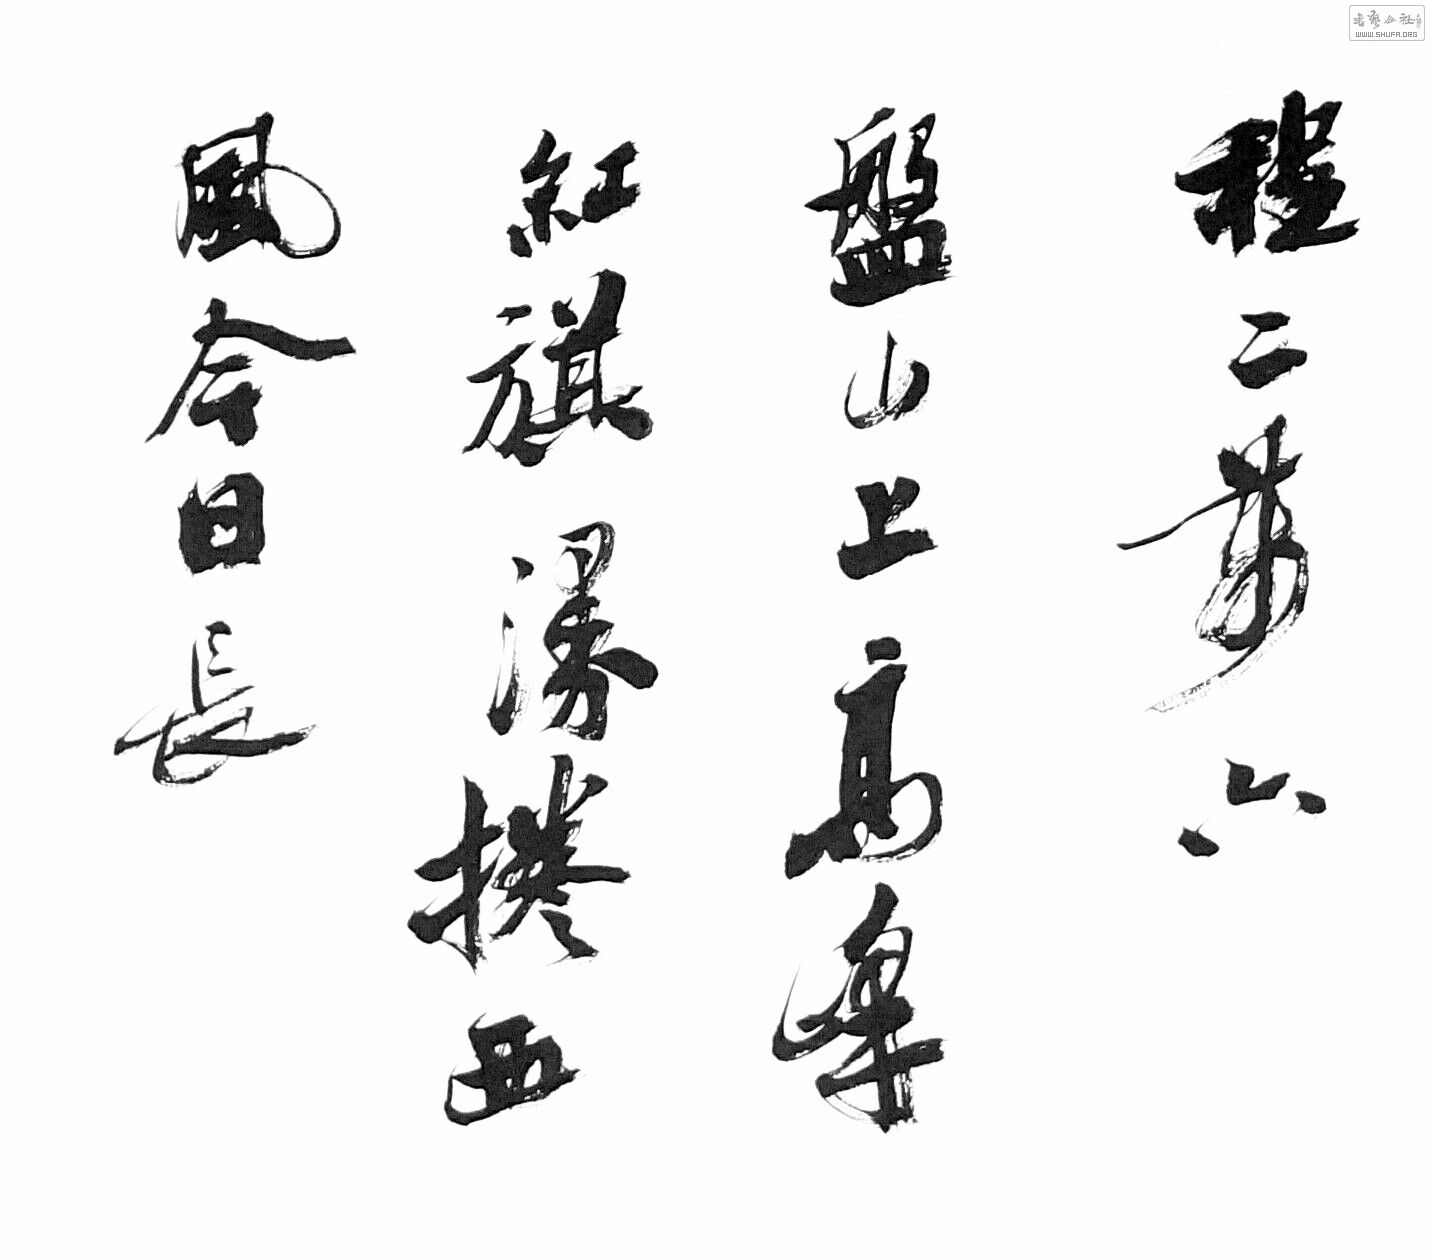 書藝公社
WWW.SHUFA.ORG
程二萬六
盤山上高峰
紅旗漫捲西
風今日長